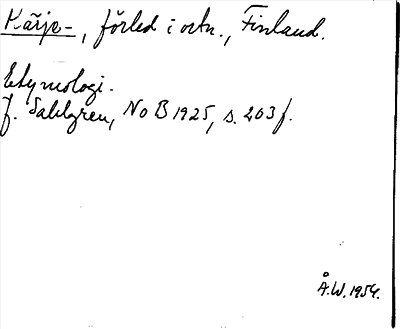 Kärje-, förled i ortn., Finland.
Etymologi.
J. Sahlgren, NoB 1925, s. 203 f.
Å.W. 1954.